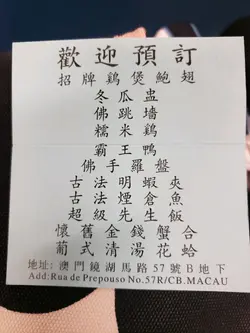 歡迎預訂
招牌鷄煲鮑翅
冬瓜盅
佛跳墻
糯米鷄
霸王鴨
佛手羅盤
古法明蝦夾
古法煙倉魚
超級先生飯
懷舊金錢蟹合
葡式清湯花蛤
地址: 澳門鏡湖馬路57號B地下
Add:Rua de Prepouso No.57R/CB.MACAU